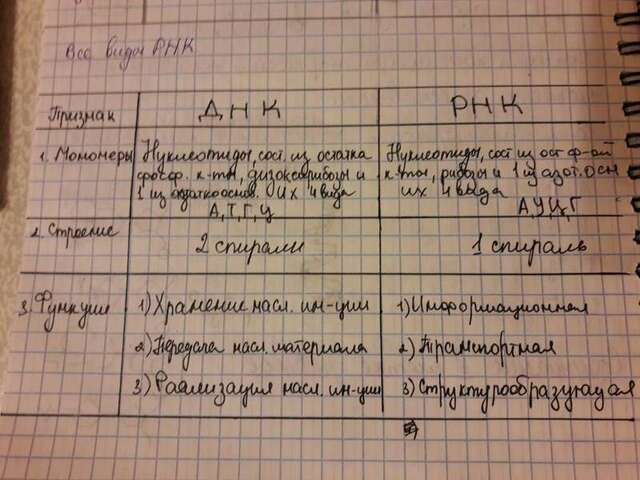 Все виды РНК
Признак
ДНК
РНК
1. Мономеры
Нуклеотиды, сост. из остатка
фосф. к-ты, дизоксорибозы и
1 из азаткооснов. Их 4 вида
А, Т, Г, Ц
Нуклеотиды, сост из ост ф-ой
к-ты, рибозы и 1 из азот. осн
их 4 вида
А, У, Ц, Г
2. Строение
2 спирали
1 спираль
3. Функции
1) Хранение насл. ин-ции
2) Передача насл. материала
3) Реализация насл. ин-ции
1) Информационная
2) Транспортная
3) Структурообразующая